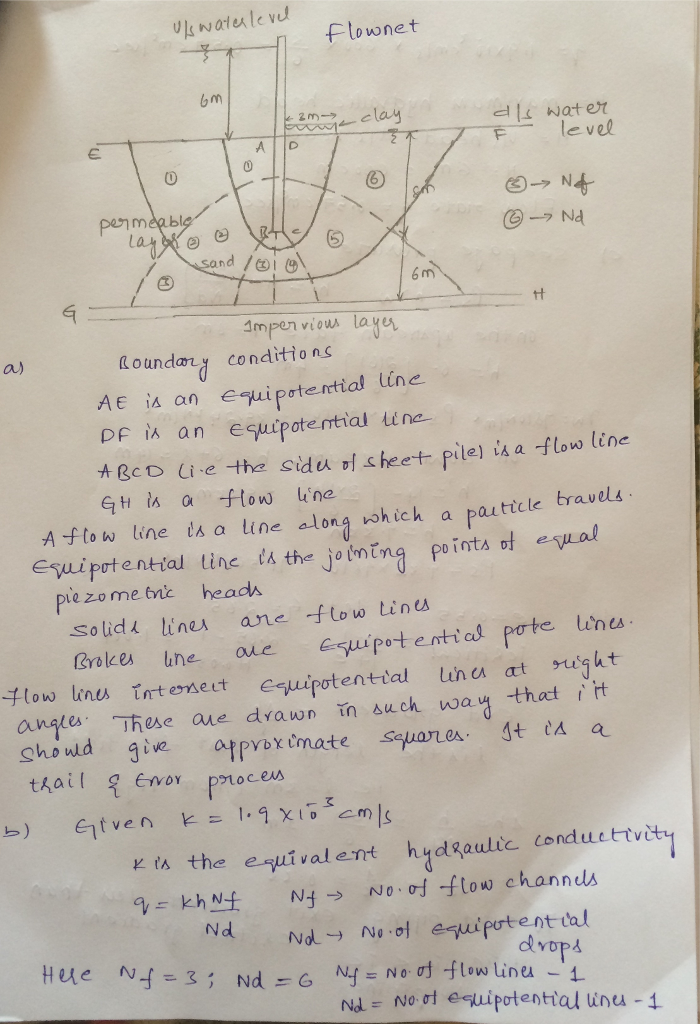 u/s water level
Flownet
6m
2m
clay
d/s water
level
E
A
D
F
①
①
⑥
③ → Nf
⑥ → Nd
permeable
layer
②
②
B
C
⑤
sand
③
④
③
6m
G
H
Impervious layer
a) Boundary conditions
AE is an Equipotential line
DF is an Equipotential line
ABCD (i.e the sides of sheet pile) is a flow line
GH is a flow line
A flow line is a line along which a particle travels.
Equipotential line is the joining points of equal
piezometric heads
Solids lines are flow lines
Brokes line are Equipotential pote lines.
Flow lines intersect equipotential lines at right
angles. These are drawn in such way that it
should give approximate squares. It is a
trail & Error process
b) Given k = 1.9 x 10⁻³ cm/s
K is the equivalent hydraulic conductivity
q = kh Nf/Nd Nf → No. of flow channels
Nd → No. of equipotential
drops
Here Nf = 3 ; Nd = 6 Nf = No. of flow lines - 1
Nd = No. of equipotential lines - 1